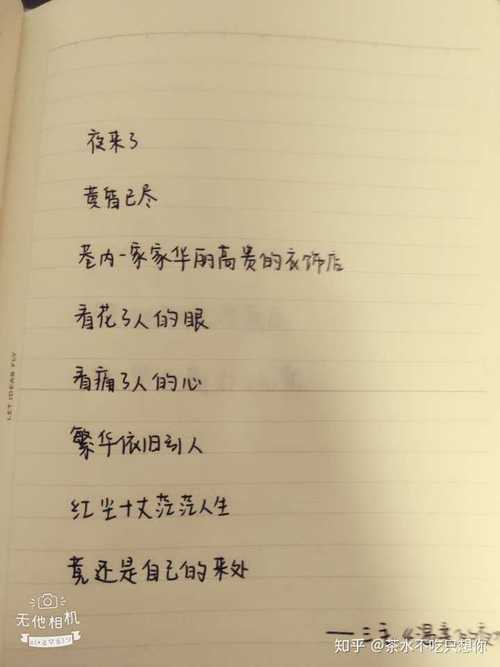 夜来了
黄昏已尽
巷内一家家华丽高贵的衣饰店
看花了人的眼
看痛了人的心
繁华依旧引人
红尘十丈茫茫人生
竟还是自己的来处
——三毛《温柔的夜
LET IDEAS FLY
无他相机
知乎 @茶水不吃只想你